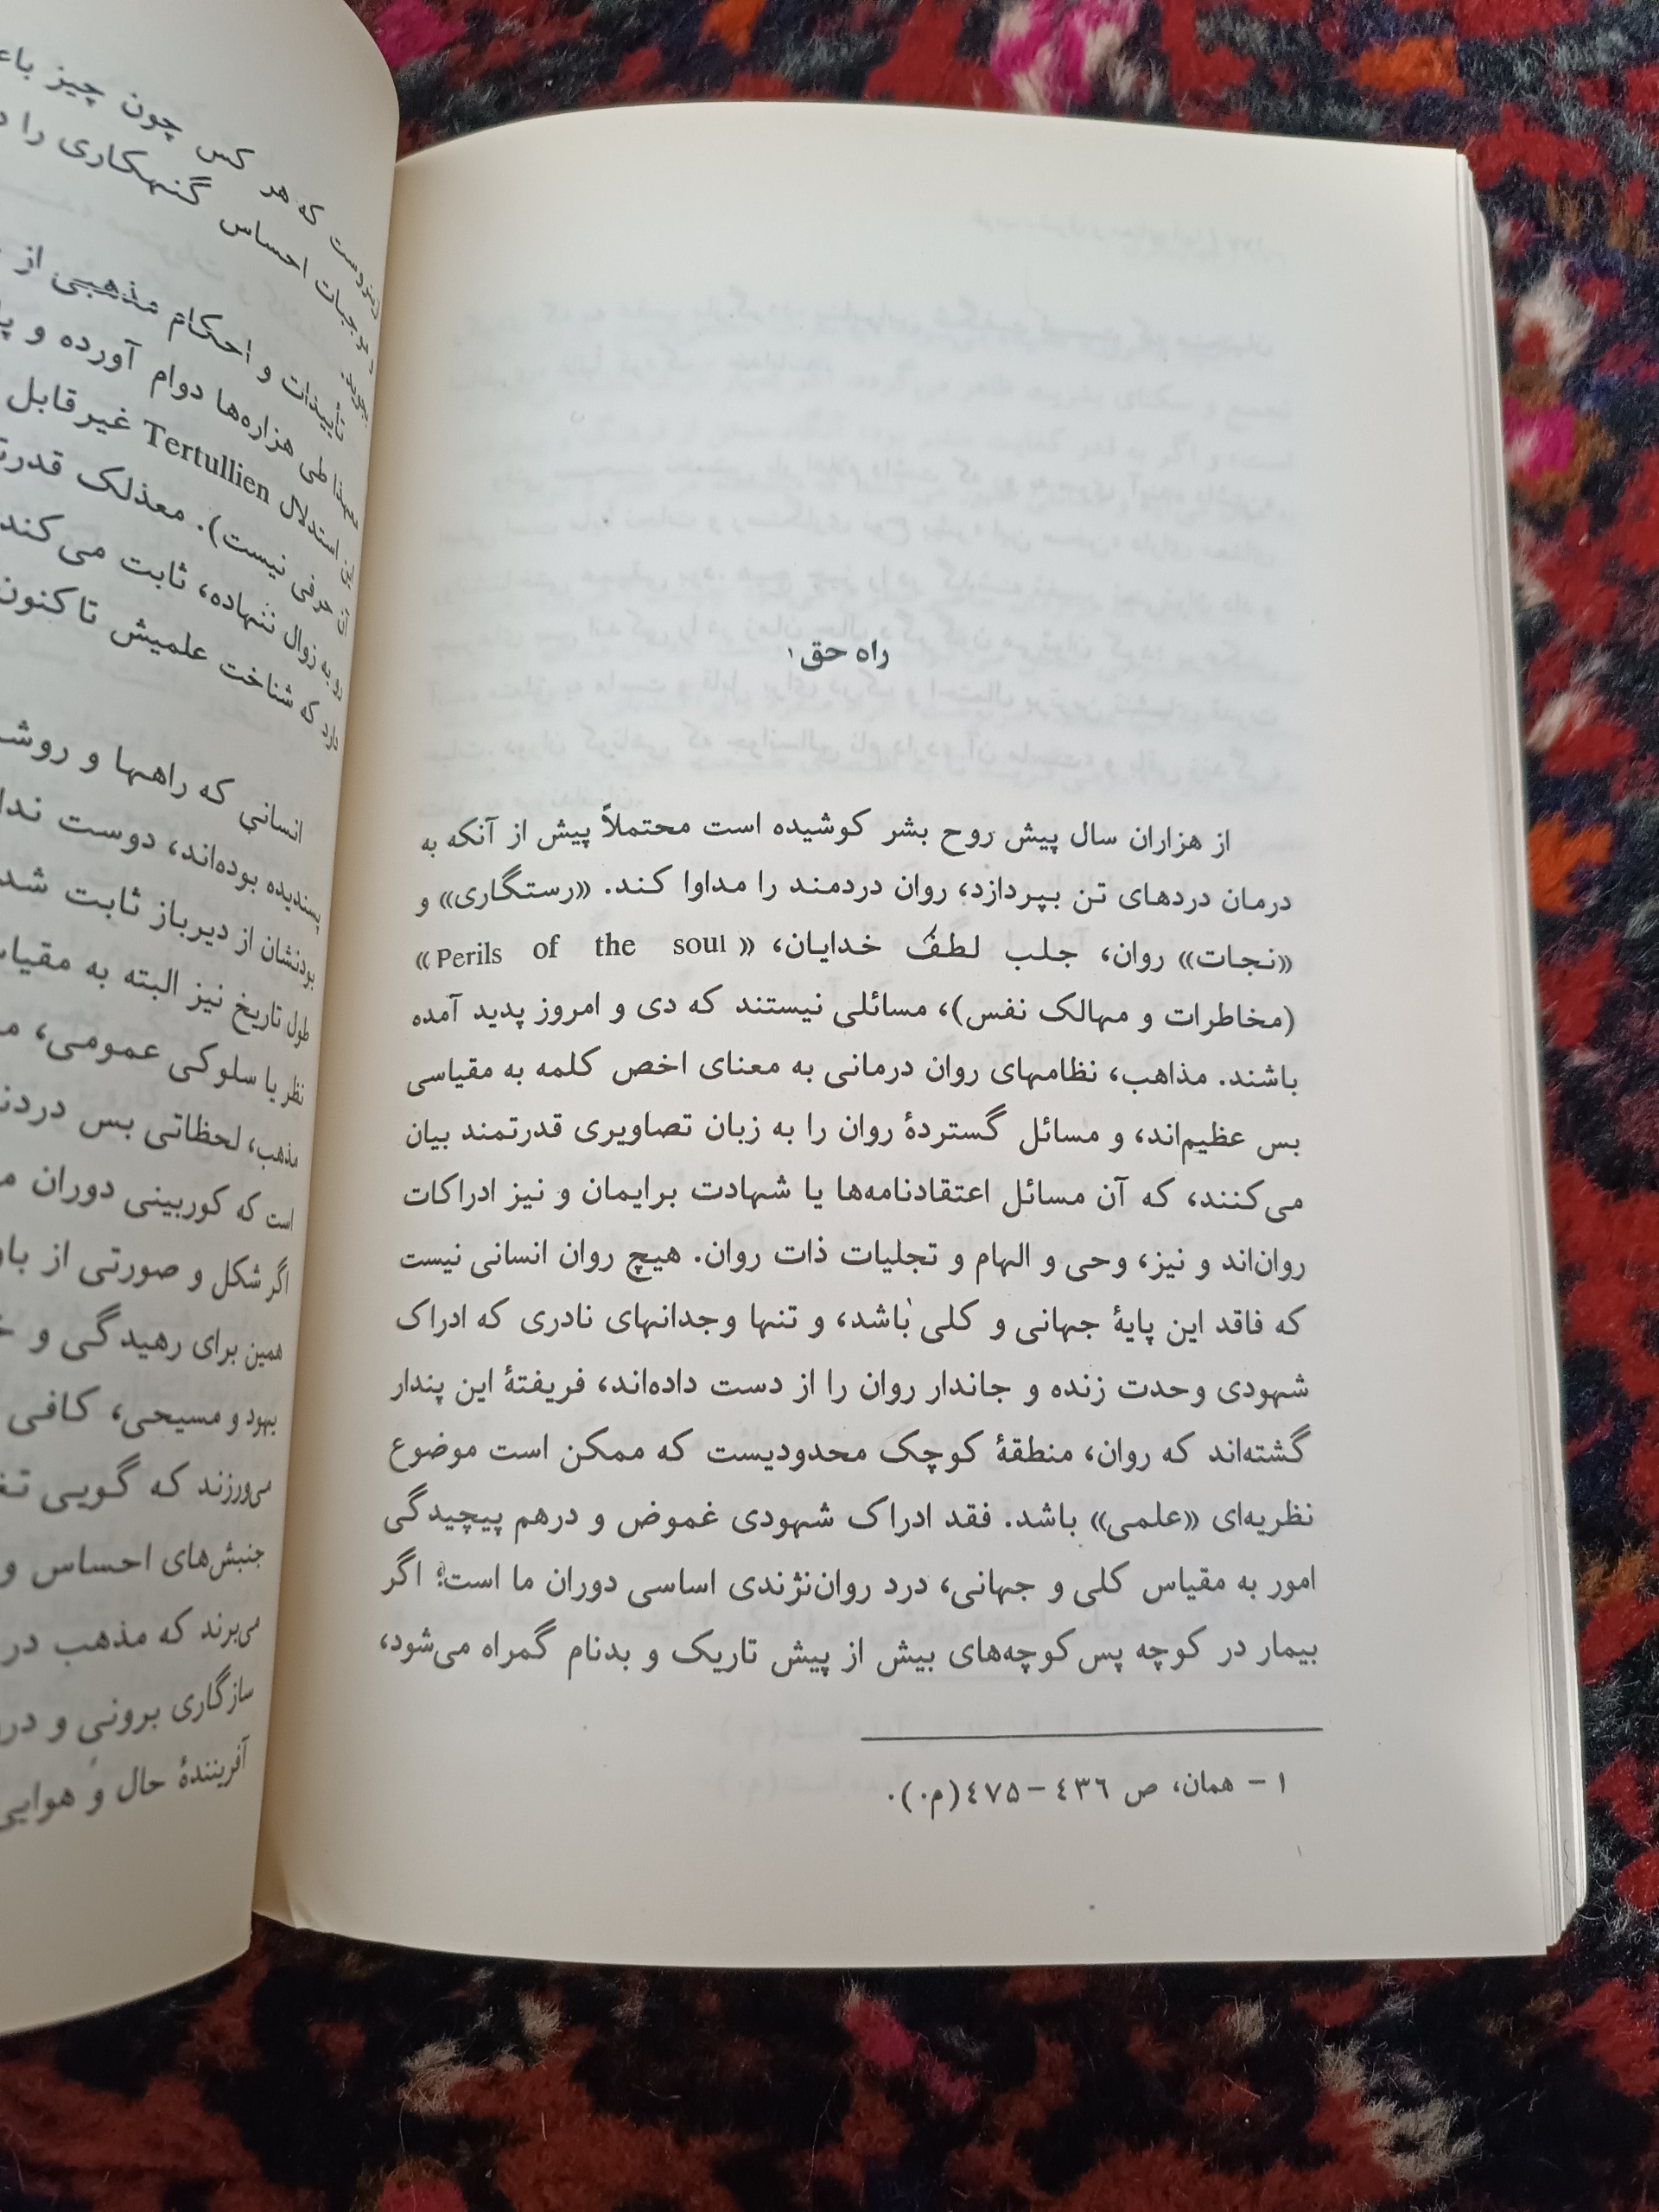 راه حق۱
از هزاران سال پیش روح بشر کوشیده است محتملاً پیش از آنکه به
درمان دردهای تن بپردازد، روان دردمند را مداوا کند. «رستگاری» و
«نجات» روان، جلب لطف خدایان، «Perils of the soul»
(مخاطرات و مهالک نفس)، مسائلی نیستند که دی و امروز پدید آمده
باشند. مذاهب، نظامهای روان درمانی به معنای اخص کلمه به مقیاسی
بس عظیم‌اند، و مسائل گستردۀ روان را به زبان تصاویری قدرتمند بیان
می‌کنند، که آن مسائل اعتقادنامه‌ها یا شهادت برایمان و نیز ادراکات
روان‌اند و نیز، وحی و الهام و تجلیات ذات روان. هیچ روان انسانی نیست
که فاقد این پایۀ جهانی و کلی باشد، و تنها وجدانهای نادری که ادراک
شهودی وحدت زنده و جاندار روان را از دست داده‌اند، فریفتۀ این پندار
گشته‌اند که روان، منطقۀ کوچک محدودیست که ممکن است موضوع
نظریه‌ای «علمی» باشد. فقد ادراک شهودی غموض و درهم پیچیدگی
امور به مقیاس کلی و جهانی، درد روان‌نژندی اساسی دوران ما است؛ اگر
بیمار در کوچه پس کوچه‌های بیش از پیش تاریک و بدنام گمراه می‌شود،
۱ – همان، ص ٤٣٦ – ٤٧٥(م.).
که هر کس چون چیز
موجبات احساس گنهکاری را
بجوید.
تأییدات و احکام مذهبی از
معهذا طی هزاره‌ها دوام آورده و
این استدلال Tertullien غیرقابل
آن حرفی نیست). معذلک
رو به زوال ننهاده، ثابت می‌کند
دارد که شناخت علمیش تاکنون
انسانی که راهها و
پسندیده بوده‌اند، دوست
بودنشان از دیرباز ثابت
طول تاریخ نیز البته به
نظر یا سلوکی عمومی،
مذهب، لحظاتی بس
است که کوربینی دوران
اگر شکل و صورتی از
همین برای رهیدگی و
یهود و مسیحی، کافی
می‌ورزند که گویی
جنبش‌های احساس و
می‌برند که مذهب در
سازگاری برونی و
آفرینندۀ حال و هوایی